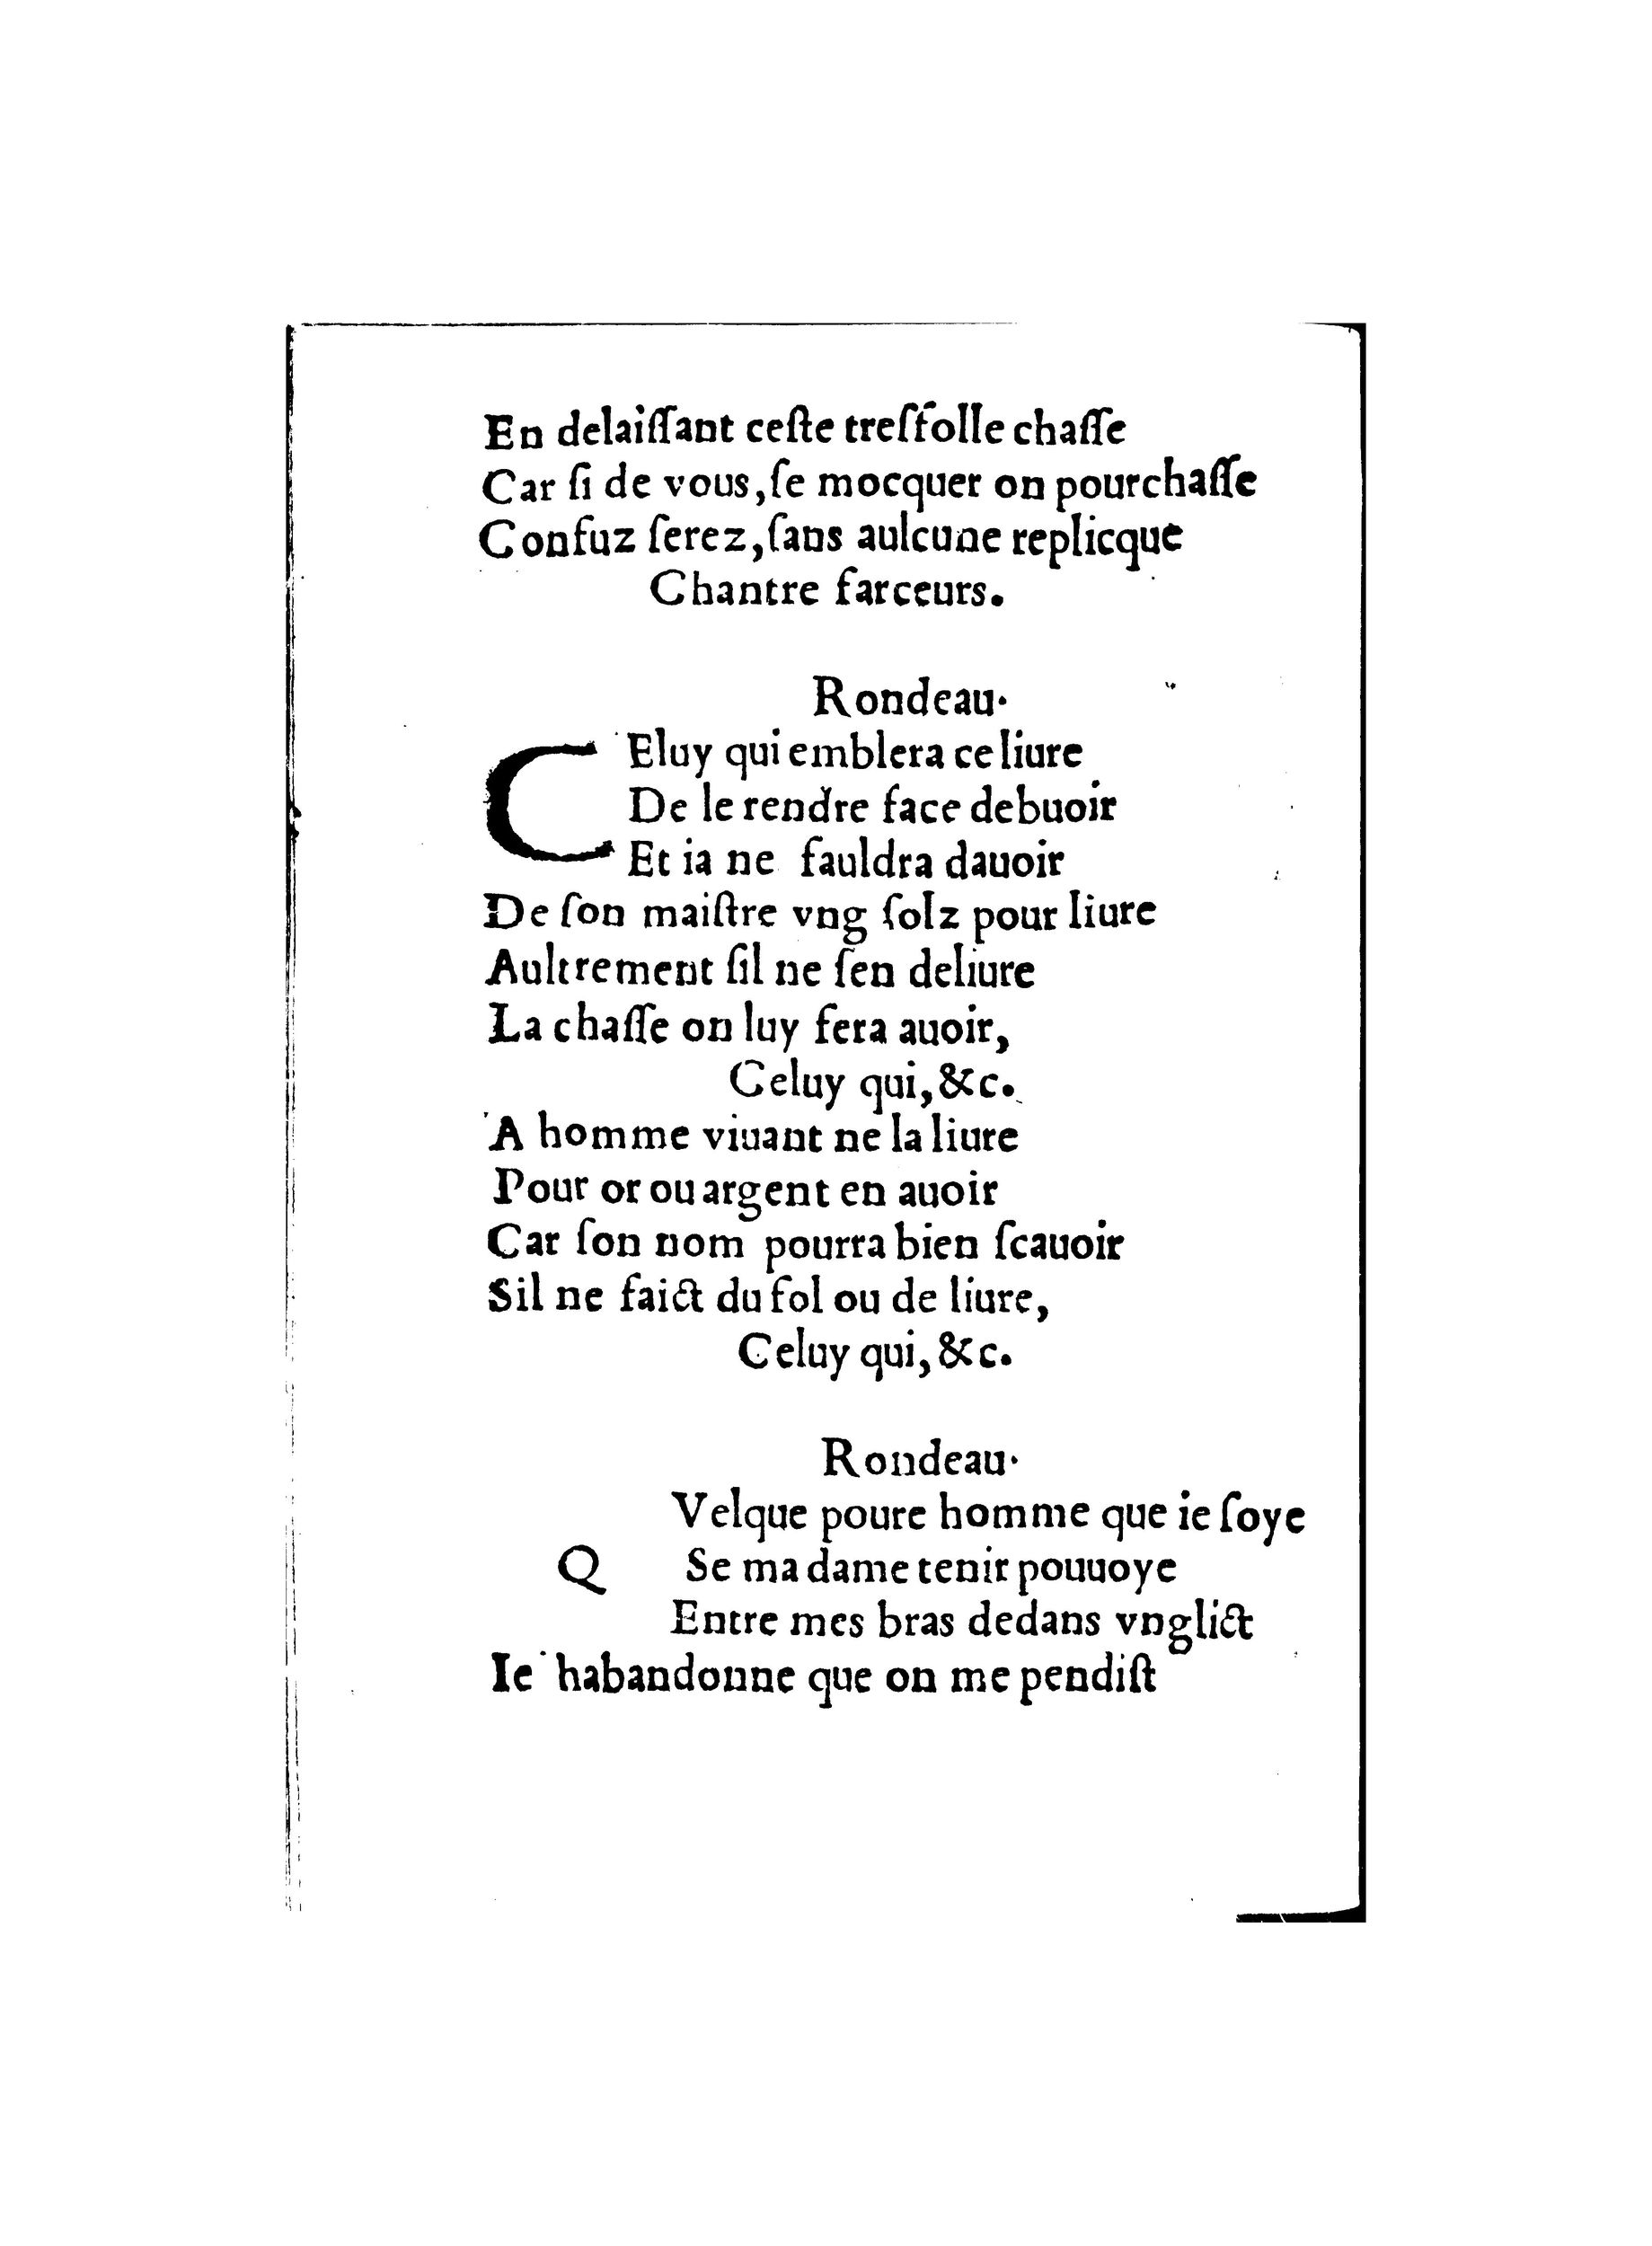 En delaiſſant ceſte treſfolle chaſſe
Car ſi de vous,ſe mocquer on pourchaſſe
Confuz ſerez,ſans aulcune replicque
Chantre farceurs.
Rondeau.
CEluy qui emblera ce liure
De le rendre face debuoir
Et ia ne fauldra dauoir
De ſon maiſtre vng ſolz pour liure
Aultrement ſil ne ſen deliure
La chaſſe on luy fera auoir,
Celuy qui,&c.
A homme viuant ne la liure
Pour or ou argent en auoir
Car ſon nom pourra bien ſcauoir
Sil ne faict du fol ou de liure,
Celuy qui,&c.
Rondeau.
QVelque poure homme que ie ſoye
Se ma dame tenir pouuoye
Entre mes bras dedans vng lict
Ie habandonne que on me pendiſt